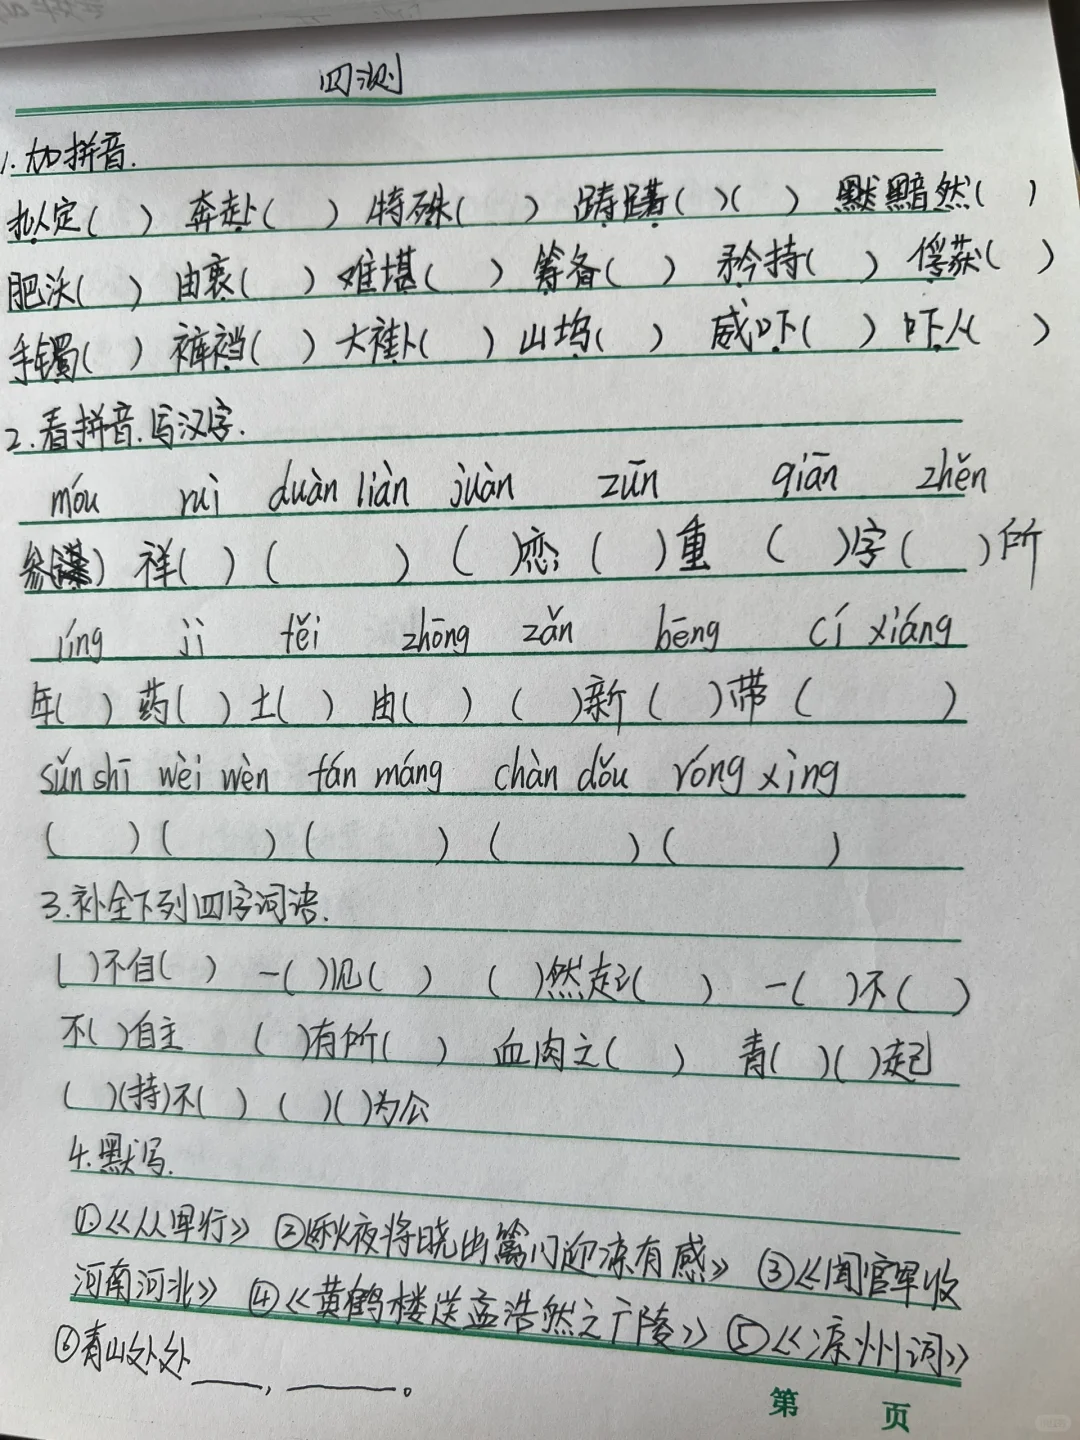 四测
1.加拼音.
拟定( ) 奔赴( ) 特殊( ) 踌躇( )( ) 黯然( )
肥沃( ) 由衷( ) 难堪( ) 筹备( ) 矜持( ) 俘获( )
手镯( ) 裤裆( ) 大褂( ) 山坞( ) 威吓( ) 吓人( )
2.看拼音.写汉字.
móu ruì duàn liàn juàn zūn qiān zhěn
参(谋) 祥( ) ( ) ( )恋 ( )重 ( )字 ( )所
líng jì těi zhōng zǎn bēng cí xiáng
年( ) 药( ) 土( ) 由( ) ( )新 ( )带 ( )
sǔn shī wèi wèn fán máng chàn dǒu róng xìng
( ) ( ) ( ) ( ) ( )
3.补全下列四字词语.
( )不自( ) 一( )见( ) ( )然起( ) 一( )不( )
不( )自主 ( )有所( ) 血肉之( ) 青( )( )起
( )(持)不( ) ( )( )为公
4.默写.
①《从军行》 ②秋夜将晓出篱门迎凉有感》 ③《闻官军收
河南河北》 ④《黄鹤楼送孟浩然之广陵》 ⑤《凉州词》
⑥青山处处____,______。
第 页